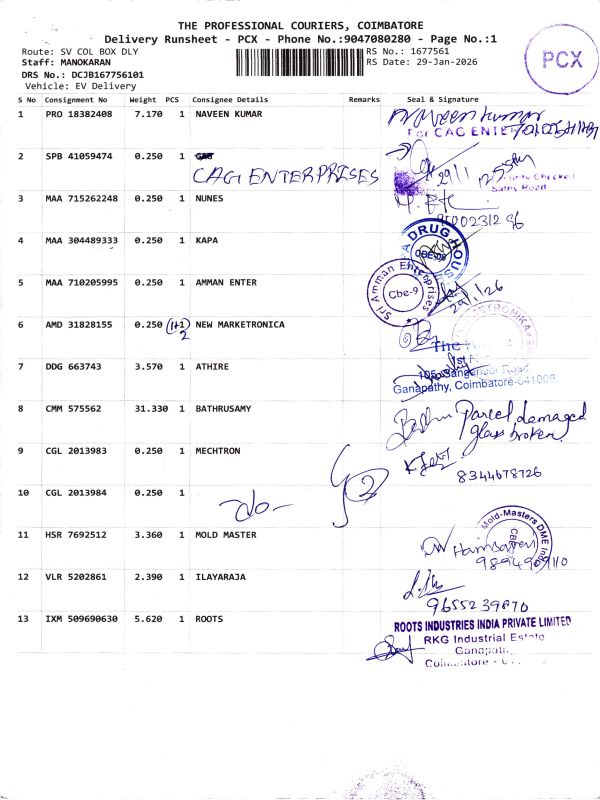 THE PROFESSIONAL COURIERS, COIMBATORE
Delivery Runsheet - PCX - Phone No.:9047080280 - Page No.:1
PCX
Route: SV COL BOX DLY
RS No.: 1677561
Staff: MANOKARAN
RS Date: 29-Jan-2026
DRS No.: DCJB167756101
Vehicle: EV Delivery
S No Consignment No Weight PCS Consignee Details Remarks Seal & Signature
1 PRO 18382408 7.170 1 NAVEEN KUMAR
Naveen kumar
For CAG ENTER
2 SPB 41059474 0.250 1
CAG ENTERPRISES
29/1
Checked
Sathy Road
3 MAA 715262248 0.250 1 NUNES
4 MAA 304489333 0.250 1 KAPA
DRUG HOUSE
CBE-09
5 MAA 710205995 0.250 1 AMMAN ENTER
Sri Amman Enterprises
Cbe-9
29/1/26
6 AMD 31828155 0.250 (1+1) NEW MARKETRONICA
2
The
1st Fl
7 DDG 663743 3.570 1 ATHIRE
105, Sanganoor Road,
Ganapathy, Coimbatore-641006
8 CMM 575562 31.330 1 BATHRUSAMY
Parcel damaged
glass broken
9 CGL 2013983 0.250 1 MECHTRON
8344678726
10 CGL 2013984 0.250 1
-do-
2
11 HSR 7692512 3.360 1 MOLD MASTER
Mold-Masters DME India
CBE
12 VLR 5202861 2.390 1 ILAYARAJA
9655239870
13 IXM 509690630 5.620 1 ROOTS
ROOTS INDUSTRIES INDIA PRIVATE LIMITED
RKG Industrial Estate
Ganapathy,